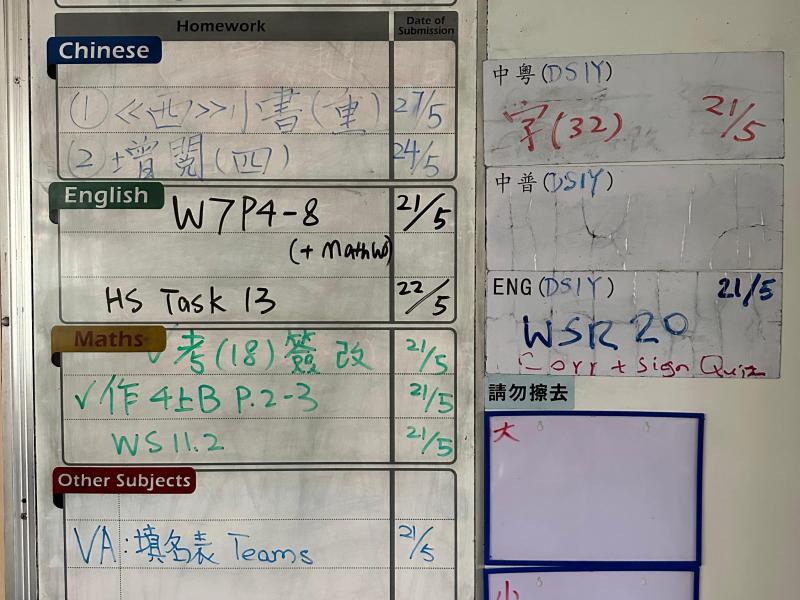 Homework
Date of Submission
Chinese
① <<西>>小書(重) 27/5
② 增閱(四) 24/5
English
W7P4-8 21/5
(+ Math W)
HS Task 13 22/5
Maths
✓考(18)簽改 21/5
✓作4上B P.2-3 21/5
WS 11.2 21/5
Other Subjects
VA:填名表 Teams 21/5
中粵(DSIY)
字(32) 21/5
中普(DSIY)
ENG(DSIY) 21/5
WSR 20
Corr + Sign Quiz
請勿擦去
大
小